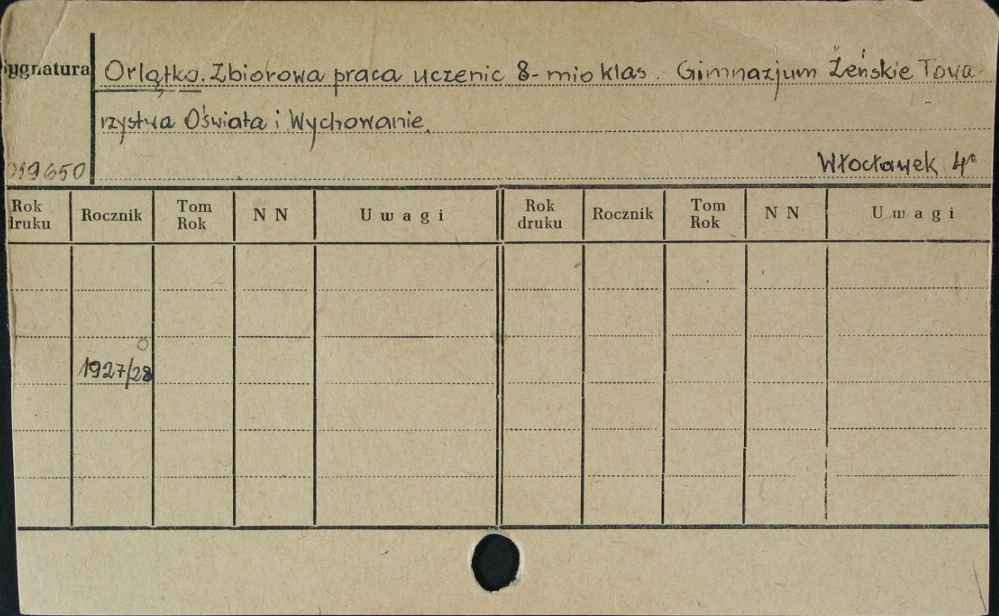 Sygnatura Orlątko. Zbiorowa praca uczenic 8-mio klas. Gimnazjum Żeńskie Towa-
rzystwa Oświata i Wychowanie.
019650 Włocławek 4°
Rok druku Rocznik Tom Rok N N Uwagi Rok druku Rocznik Tom Rok N N Uwagi
1927/28